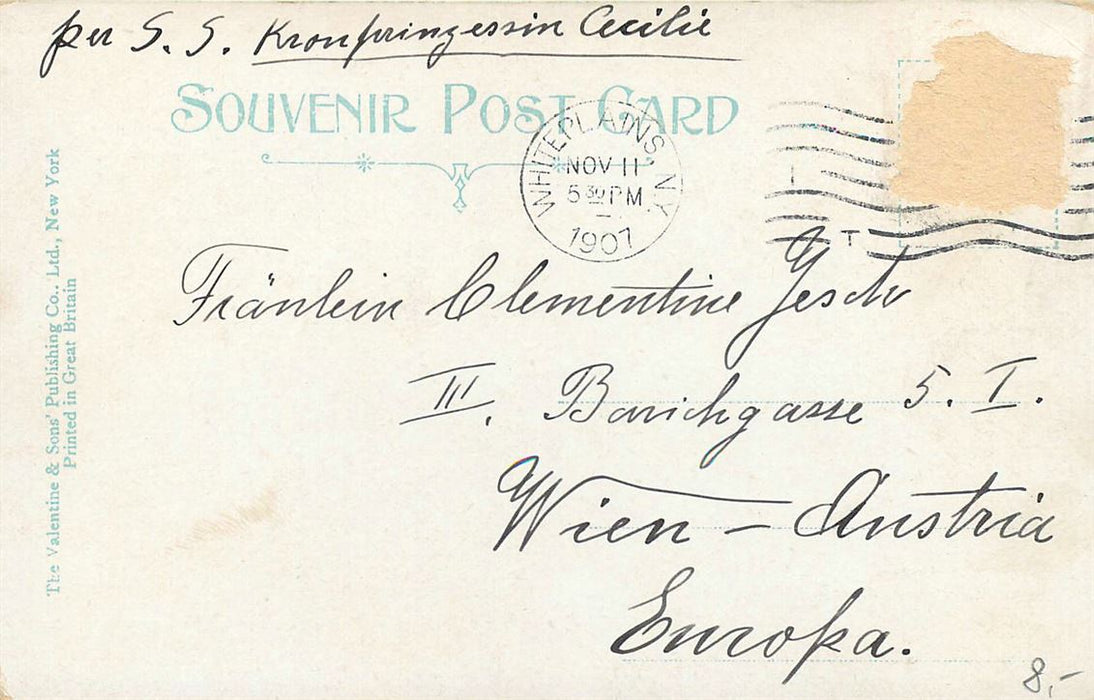 per S. S. Kronprinzessin Cecilie
SOUVENIR POST CARD
WHITE PLAINS, N.Y.
NOV 11
5 30 PM
1907
Fräulein Clementine Jesch
III. Barichgasse 5. I.
Wien – Austria
Europa.
8,-
The Valentine & Sons' Publishing Co., Ltd., New York
Printed in Great Britain